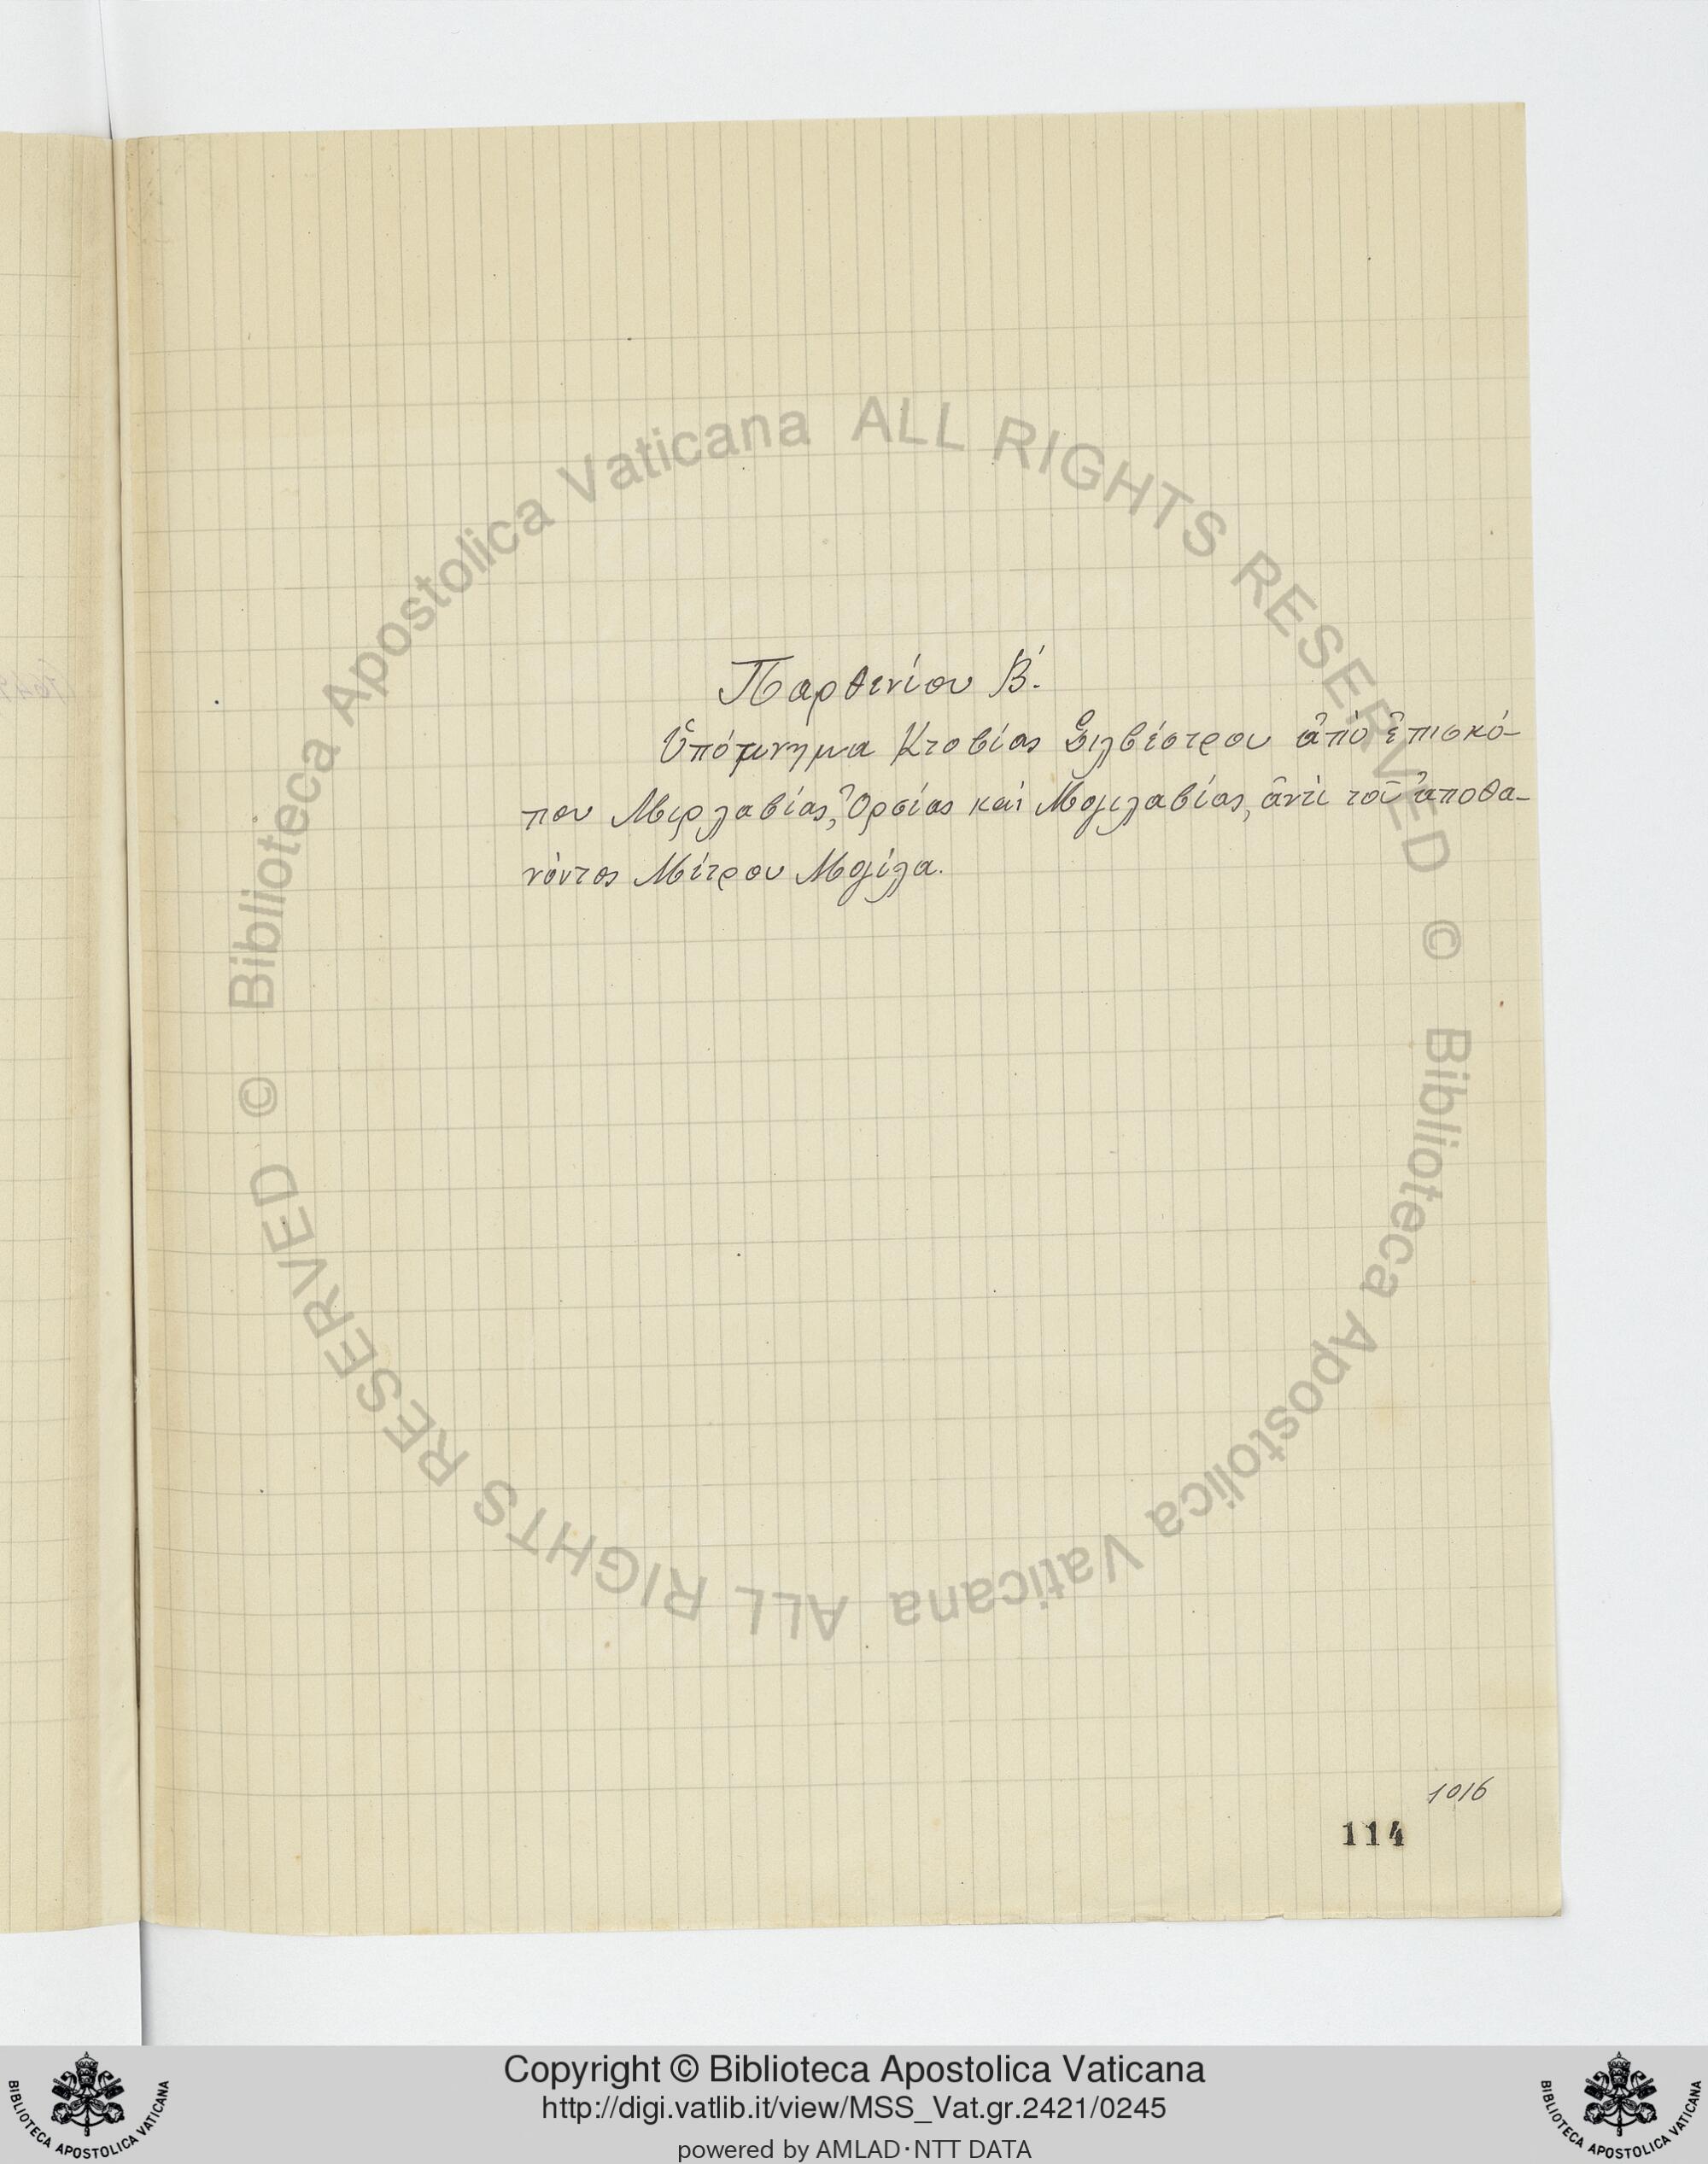 Παρθενίου Β΄.
Ὑπόμνημα Κιοβίας Σιλβέστρου ἀπὸ ἐπισκό-
που Μιρλαβίας, Ὀρσίας καὶ Μογιλαβίας, ἀντὶ τοῦ ἀποθα-
νόντος Πέτρου Μογίλα.
1016
114
Biblioteca Apostolica Vaticana ALL RIGHTS RESERVED ©
Biblioteca Apostolica Vaticana ALL RIGHTS RESERVED ©
Copyright © Biblioteca Apostolica Vaticana
http://digi.vatlib.it/view/MSS_Vat.gr.2421/0245
powered by AMLAD·NTT DATA
BIBLIOTECA APOSTOLICA VATICANA
BIBLIOTECA APOSTOLICA VATICANA